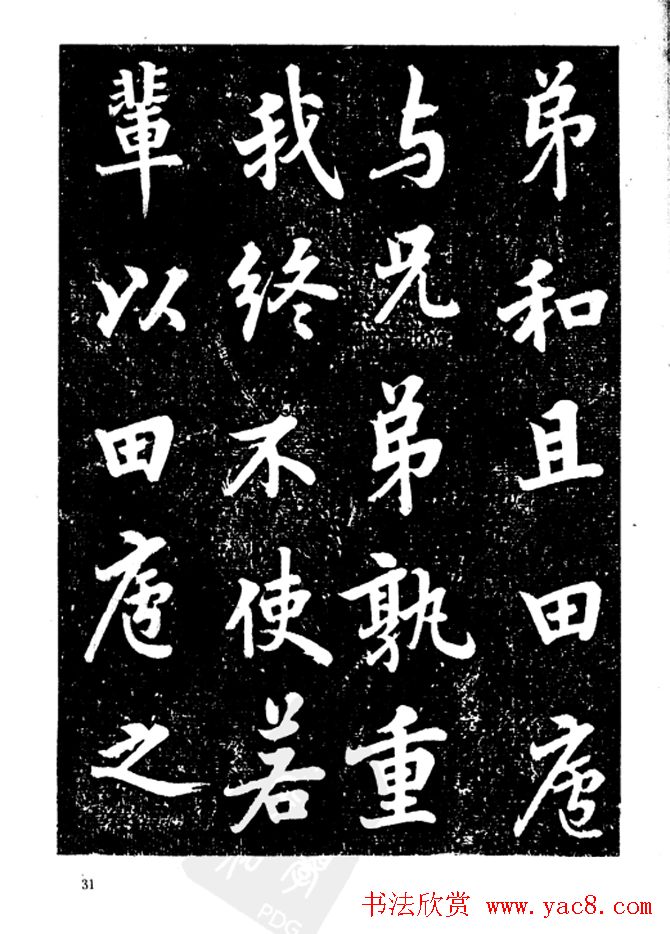 弟和且田庐
与兄弟孰重
我终不使若
輩以田庐之
31
书法欣赏 www.yac8.com
PDG